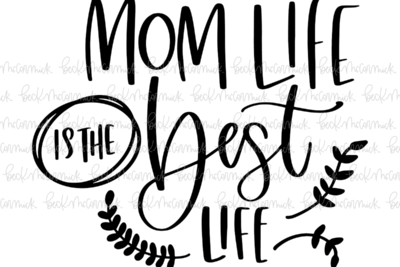 MOM LIFE
IS THE
Best
LIFE